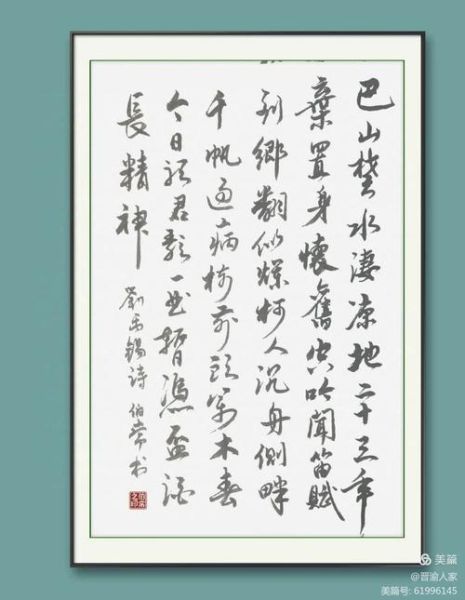 巴山楚水淒涼地二十三年
棄置身懷舊空吟聞笛賦
到鄉翻似爛柯人沉舟側畔
千帆過病樹前頭萬木春
今日聽君歌一曲暫憑盃酒
長精神
劉禹錫詩 伯常书
美篇
@晋渝人家
美篇号: 61996145